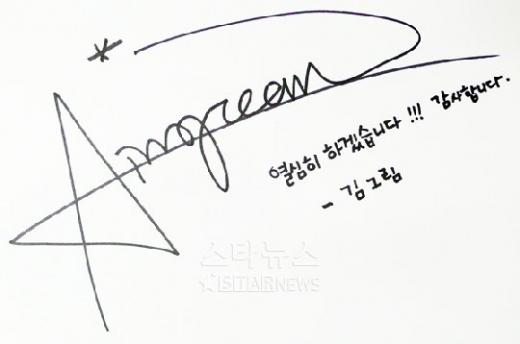 *
열심히 하겠습니다!!! 감사합니다.
- 김그림
스타뉴스
STARNEWS